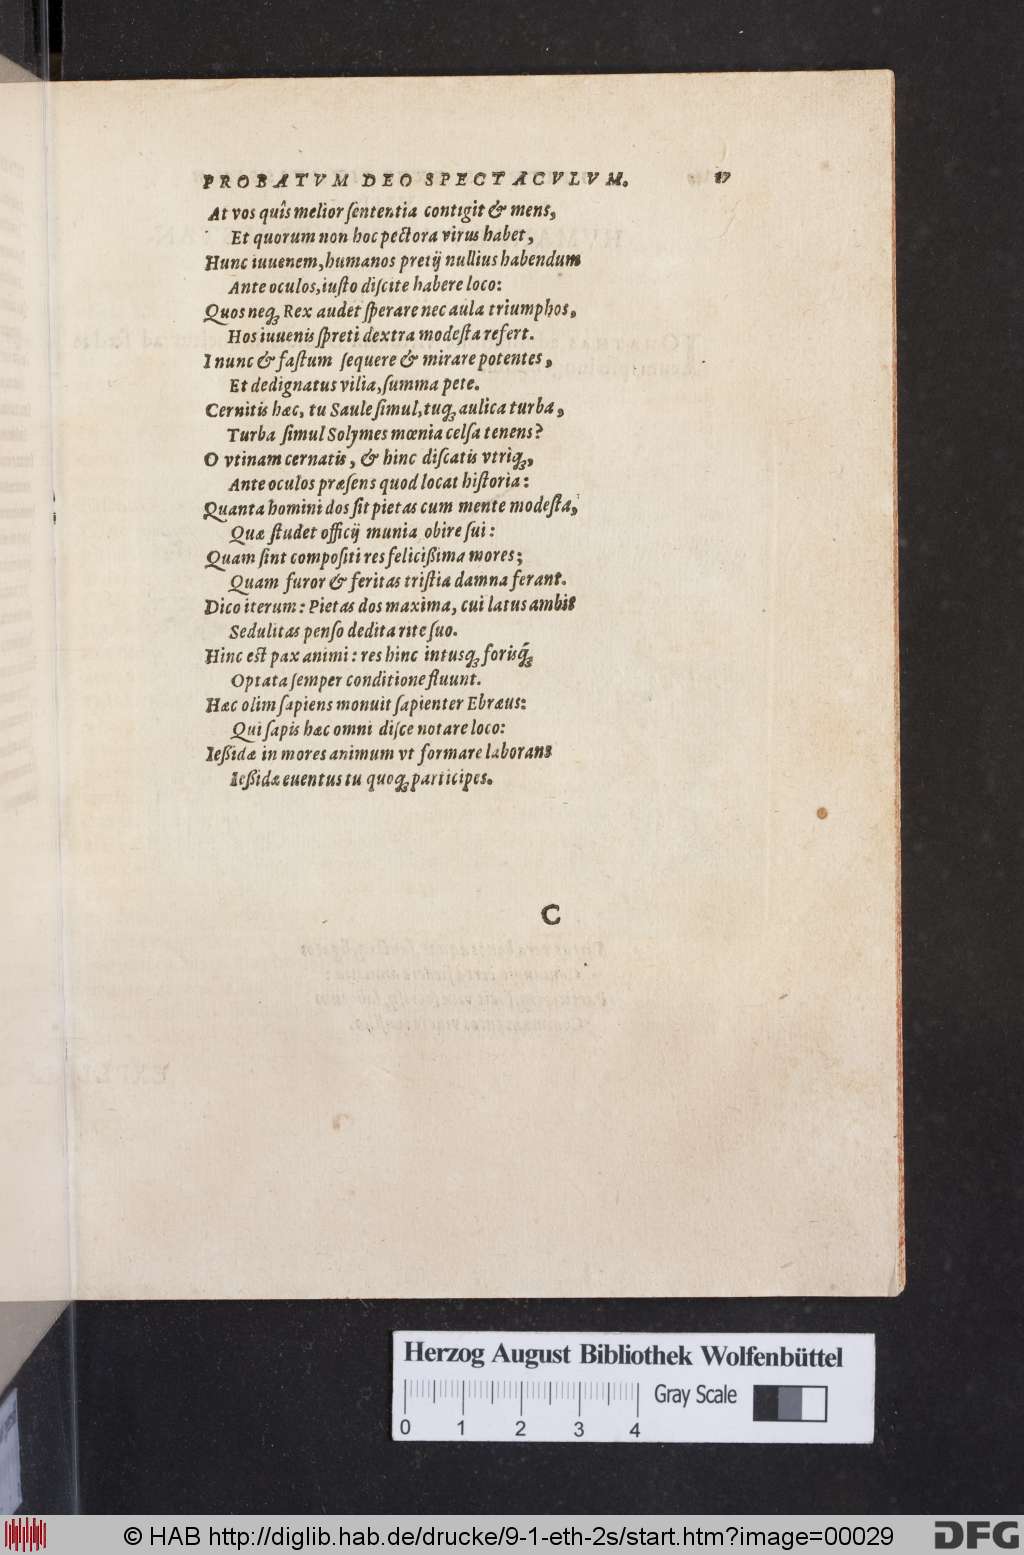 PROBATVM DEO SPECTACVLVM. 17
At vos quîs melior ſententia contigit & mens,
Et quorum non hoc pectora virus habet,
Hunc iuuenem, humanos pretij nullius habendum
Ante oculos, iuſto diſcite habere loco:
Quos neq; Rex audet ſperare nec aula triumphos,
Hos iuuenis ſpreti dextra modeſta refert.
I nunc & faſtum ſequere & mirare potentes,
Et dedignatus vilia, ſumma pete.
Cernitis hæc, tu Saule ſimul, tuq; aulica turba,
Turba ſimul Solymes mœnia celſa tenens?
O vtinam cernatis, & hinc diſcatis vtriq;,
Ante oculos præſens quod locat hiſtoria:
Quanta homini dos ſit pietas cum mente modeſta,
Quæ ſtudet officij munia obire ſui:
Quam ſint compoſiti res feliciſsima mores;
Quam furor & feritas triſtia damna ferant.
Dico iterum: Pietas dos maxima, cui latus ambit
Sedulitas penſo dedita rite ſuo.
Hinc eſt pax animi: res hinc intusq; forisq́;
Optata ſemper conditione fluunt.
Hæc olim ſapiens monuit ſapienter Ebræus:
Qui ſapis hæc omni diſce notare loco:
Ießidæ in mores animum vt formare laborans
Ießidæ euentus tu quoq; participes.
C
Herzog August Bibliothek Wolfenbüttel
0 1 2 3 4 Gray Scale
© HAB http://diglib.hab.de/drucke/9-1-eth-2s/start.htm?image=00029 DFG